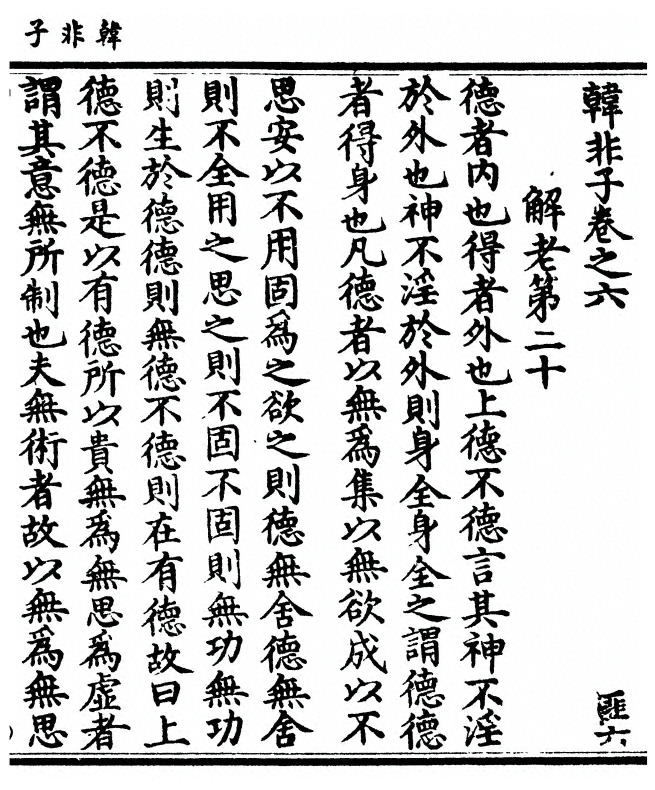 韓非子
韓非子卷之六
匪六
解老第二十
德者内也得者外也上德不德言其神不淫
於外也神不淫於外則身全身全之謂德德
者得身也凡德者以無為集以無欲成以不
思安以不用固為之欲之則德無舍德無舍
則不全用之思之則不固不固則無功無功
則生於德德則無德不德則在有德故曰上
德不德是以有德所以貴無為無思為虛者
謂其意無所制也夫無術者故以無為無思